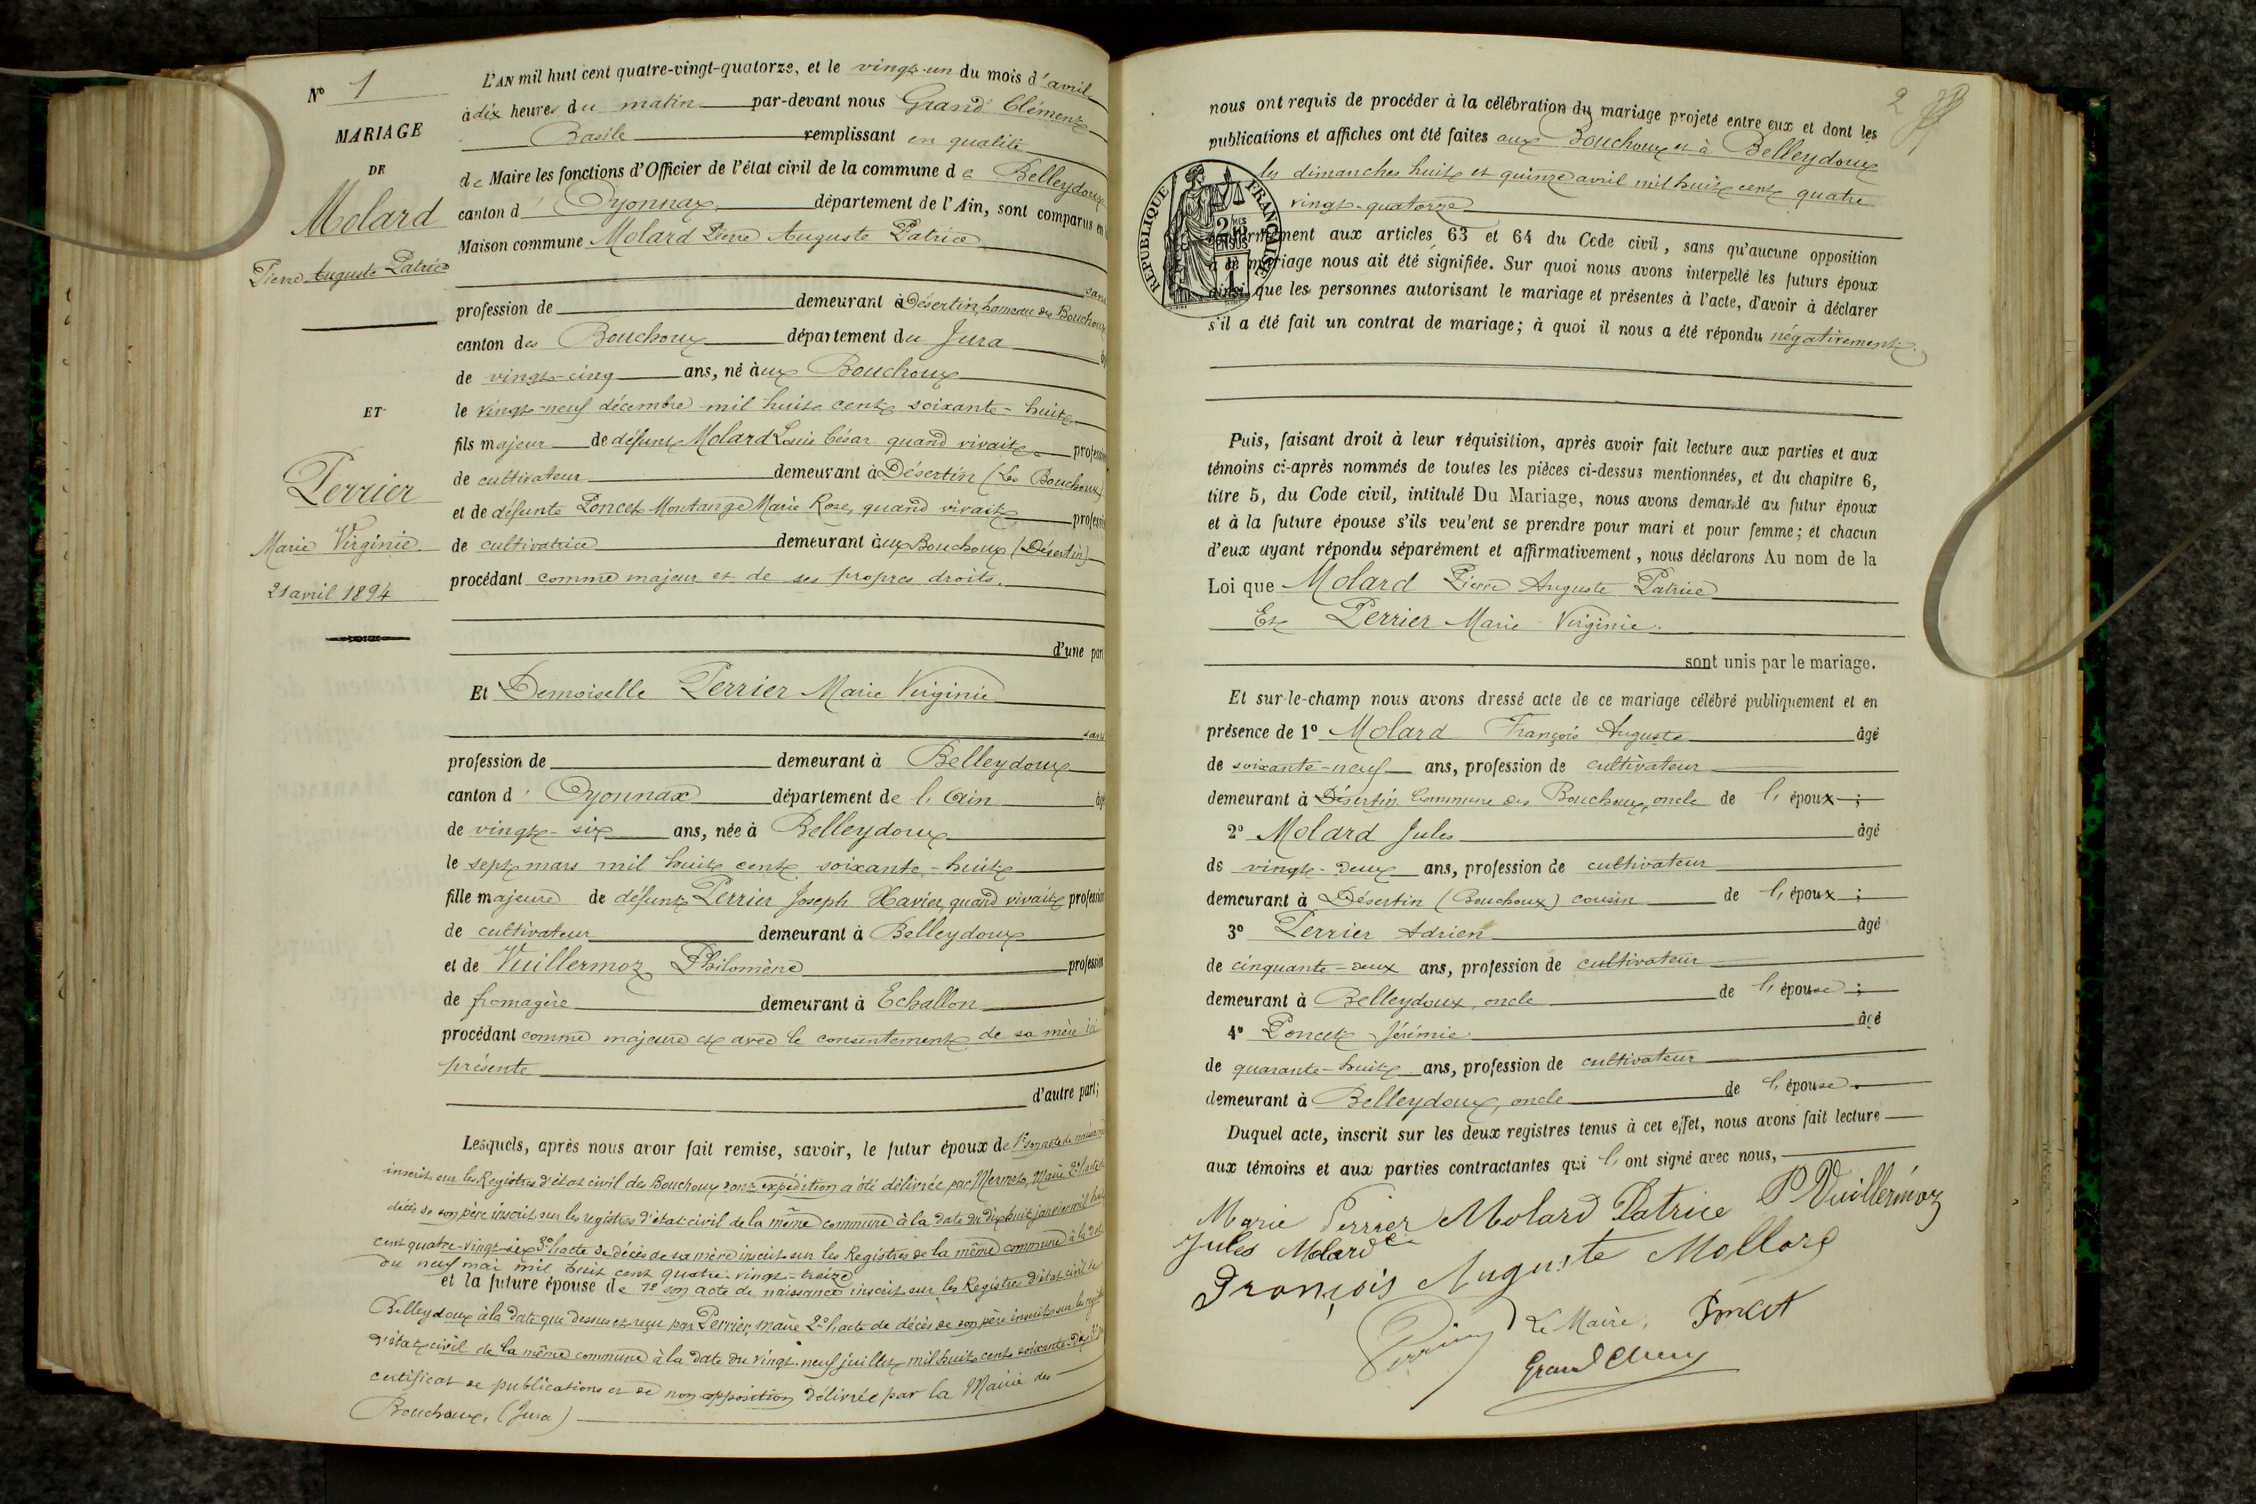 Nº 1
MARIAGE
DE
Molard
Pierre Auguste Patrice
ET
Perrier
Marie Virginie
21 avril 1894
L'AN mil huit cent quatre-vingt-quatorze, et le vingt-un du mois d'avril
à dix heures du matin par-devant nous Grand Clément
Basile remplissant en qualité
de Maire les fonctions d'Officier de l'état civil de la commune de Belleydoux
canton d'Oyonnax département de l'Ain, sont comparus en
Maison commune Molard Pierre Auguste Patrice
sans
profession de demeurant à Désertin, hameau des Bouchoux
canton des Bouchoux département du Jura
de vingt-cinq ans, né aux Bouchoux
le vingt-neuf décembre mil huit cent soixante-huit
fils majeur de défunt Molard Louis César quand vivait profession
de cultivateur demeurant à Désertin (Les Bouchoux)
et de défunte Poncet-Montange Marie Rose, quand vivait profession
de cultivatrice demeurant aux Bouchoux (Désertin)
procédant comme majeur et de ses propres droits.
d'une part
Et Demoiselle Perrier Marie Virginie
sans
profession de demeurant à Belleydoux
canton d'Oyonnax département de l'Ain
de vingt-six ans, née à Belleydoux
le sept mars mil huit cent soixante-huit
fille majeure de défunt Perrier Joseph Xavier, quand vivait profession
de cultivateur demeurant à Belleydoux
et de Vuillermoz Philomène profession
de fromagère demeurant à Echallon
procédant comme majeure et avec le consentement de sa mère ici
présente
d'autre part;
Lesquels, après nous avoir fait remise, savoir, le futur époux de 1º son acte de naissance
inscrit sur les Registres d'état civil des Bouchoux dont expédition a été délivrée par Mermet, Maire 2º l'acte de
décès de son père inscrit sur les registres d'état civil de la même commune à la date du dix huit janvier mil huit
cent quatre-vingt-six 3º l'acte de décès de sa mère inscrit sur les Registres de la même commune à la date
du neuf mai mil huit cent quatre-vingt-treize
et la future épouse de 1º son acte de naissance inscrit sur les Registres d'état civil de
Belleydoux à la date que dessus et reçu par Perrier, maire 2º l'acte de décès de son père inscrit sur les registres
d'état civil de la même commune à la date du vingt-neuf juillet mil huit cent soixante-dix
certificat de publications et de non opposition délivrée par la Mairie des
Bouchoux, (Jura)
2
nous ont requis de procéder à la célébration du mariage projeté entre eux et dont les
publications et affiches ont été faites aux Bouchoux et à Belleydoux
les dimanches huit et quinze avril mil huit cent quatre
vingt-quatorze
RÉPUBLIQUE FRANÇAISE
conformément aux articles 63 et 64 du Code civil, sans qu'aucune opposition
à ce mariage nous ait été signifiée. Sur quoi nous avons interpellé les futurs époux
ainsi que les personnes autorisant le mariage et présentes à l'acte, d'avoir à déclarer
s'il a été fait un contrat de mariage; à quoi il nous a été répondu négativement.
Puis, faisant droit à leur réquisition, après avoir fait lecture aux parties et aux
témoins ci-après nommés de toutes les pièces ci-dessus mentionnées, et du chapitre 6,
titre 5, du Code civil, intitulé Du Mariage, nous avons demandé au futur époux
et à la future épouse s'ils veu'ent se prendre pour mari et pour femme; et chacun
d'eux ayant répondu séparément et affirmativement, nous déclarons Au nom de la
Loi que Molard Pierre Auguste Patrice
Et Perrier Marie Virginie.
sont unis par le mariage.
Et sur-le-champ nous avons dressé acte de ce mariage célébré publiquement et en
présence de 1º Molard François Auguste âgé
de soixante-neuf ans, profession de cultivateur
demeurant à Désertin Commune des Bouchoux, oncle de l'époux;
2º Molard Jules âgé
de vingt-deux ans, profession de cultivateur
demeurant à Désertin (Bouchoux) cousin de l'époux;
3º Perrier Adrien âgé
de cinquante-deux ans, profession de cultivateur
demeurant à Belleydoux, oncle de l'épouse;
4º Poncet Jérémie âgé
de quarante-huit ans, profession de cultivateur
demeurant à Belleydoux, oncle de l'épouse.
Duquel acte, inscrit sur les deux registres tenus à cet effet, nous avons fait lecture
aux témoins et aux parties contractantes qui l'ont signé avec nous,
Marie Perrier Molard Patrice P Vuillermoz
Jules Molard
François Auguste Mollard
Perrier Le Maire, Poncet
Grand Clem